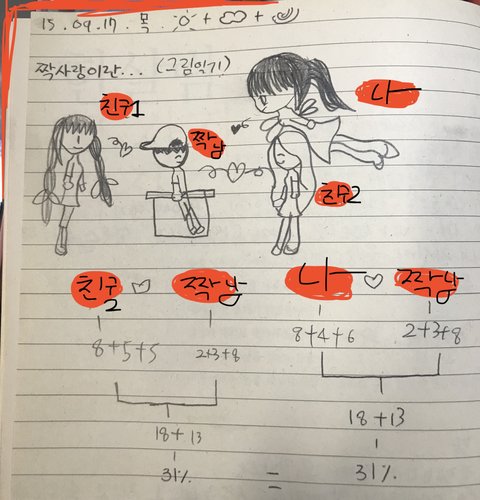 15.09.17. 목. + +
짝사랑이란... (그림일기)
친구1
나
짝남
친구2
친구2 ♡ 짝남
나 ♡ 짝남
8+5+5
2+3+8
8+4+6
2+3+8
18+13
18+13
31%
=
31%.